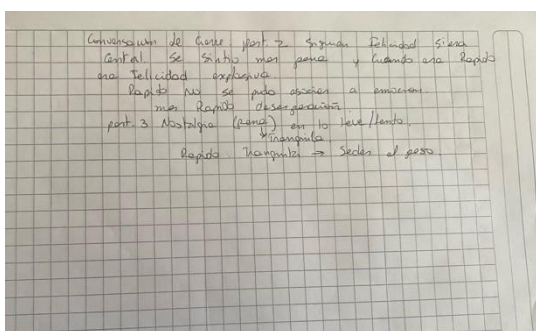 Conversación de Cierre part. 2 Felicidad si era
Central se sintió mas pena y Cuando era Rapido
era Felicidad explosiva
Rapido No se pudo asociar a emocion.
mas Rapido desesperación
part. 3 Nostalgia (pena) en lo leve/lento.
tranquila
Rapido tranquila → Ceden al peso